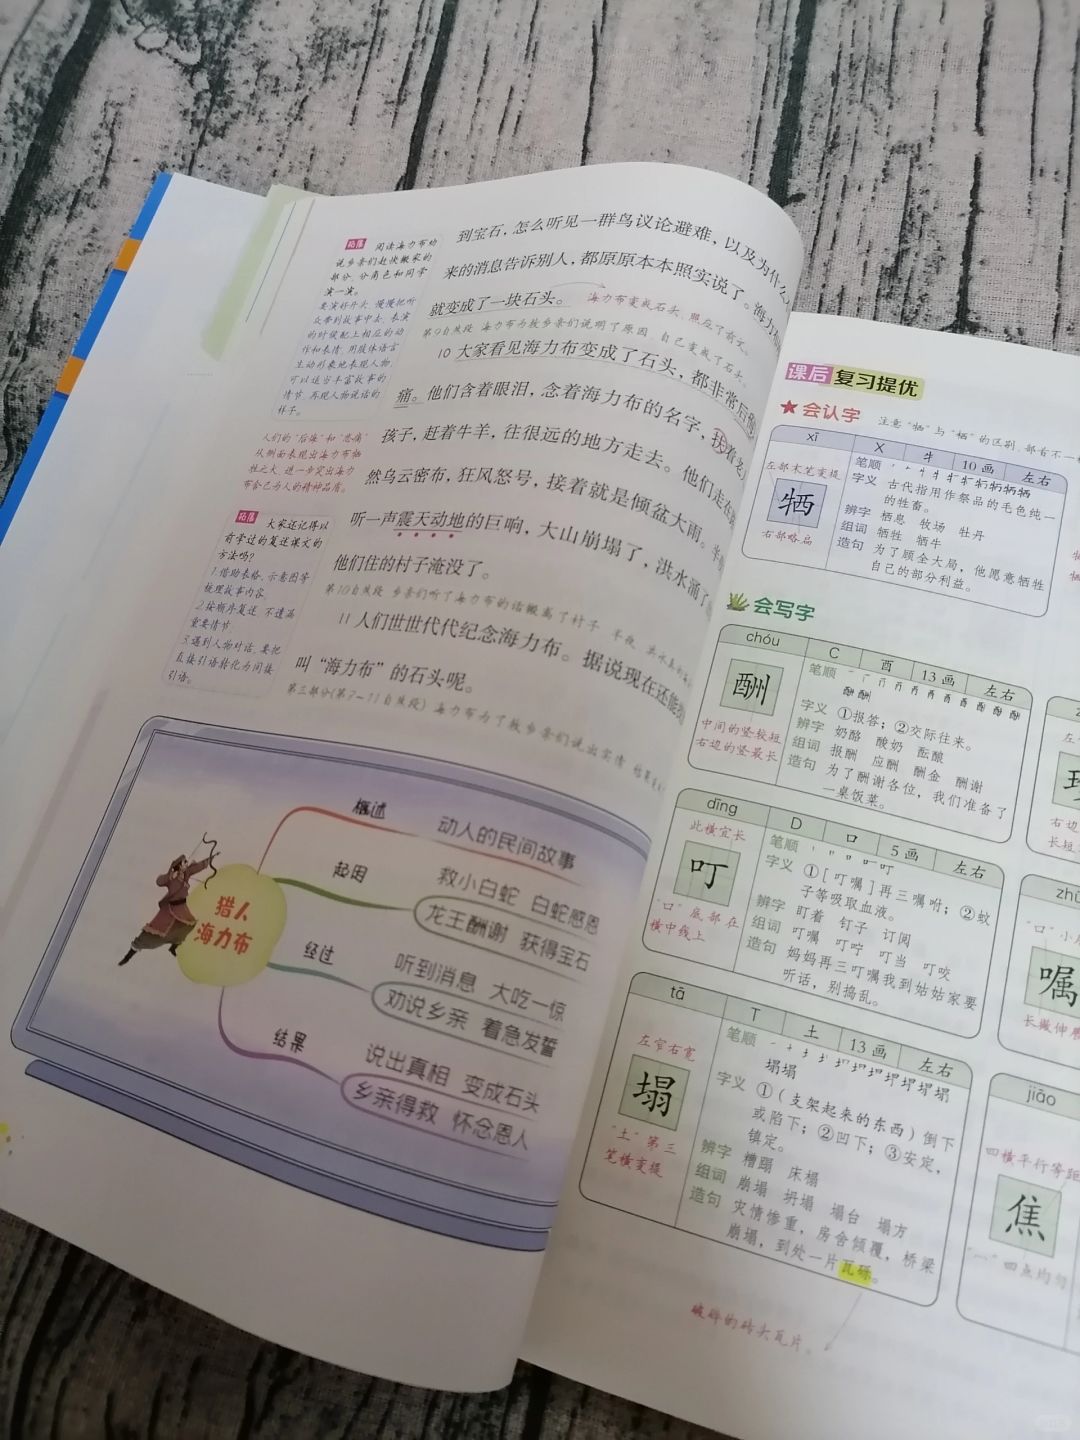 到宝石，怎么听见一群鸟议论避难，以及为什么
来的消息告诉别人，都原原本本照实说了。海力布
就变成了一块石头。
海力布变成石头，照应了前文。
第9自然段 海力布为故乡亲们说明了原因，自己变成了石头。
10 大家看见海力布变成了石头，都非常后悔
痛。他们含着眼泪，念着海力布的名字，扶着老
孩子，赶着牛羊，往很远的地方走去。他们走在路
然乌云密布，狂风怒号，接着就是倾盆大雨。半夜
听一声震天动地的巨响，大山崩塌了，洪水涌了
他们住的村子淹没了。
第10自然段 乡亲们听了海力布的话搬离了村子 半夜
11 人们世世代代纪念海力布。据说现在还能
叫“海力布”的石头呢。
第三部分(第7—11自然段) 海力布为了救乡亲们说出实情
拓展 阅读海力布劝
说乡亲们赶快搬家的
部分，分角色和同学
演一演。
要演好开头，慢慢把听
众带到故事中去，表演
的时候配上相应的动
作和表情，用肢体语言
生动形象地表现人物，
可以适当丰富故事的
情节，再现人物说话的
样子。
人们的“后悔”和“悲痛”
从侧面表现出海力布牺
牲之大，进一步突出海力
布舍己为人的精神品质。
拓展 大家还记得以
前学过的复述课文的
方法吗？
1.借助表格、示意图等
梳理故事内容。
2.按顺序复述，不遗漏
重要情节。
3.遇到人物对话，要把
直接引语转化为间接
引语。
猎人
海力布
概述 动人的民间故事
起因 救小白蛇 白蛇感恩
龙王酬谢 获得宝石
经过 听到消息 大吃一惊
劝说乡亲 着急发誓
结果 说出真相 变成石头
乡亲得救 怀念恩人
课后 复习提优
会认字
注意“牺”与“栖”的区别，部首不一
xī X 牜 10画 左右
左部末笔变提
牺
右部略扁
笔顺
字义 古代指用作祭品的毛色纯一
的牲畜。
辨字 栖息 牧场 牡丹
组词 牺牲 牺牛
造句 为了顾全大局，他愿意牺牲
自己的部分利益。
会写字
chóu C 酉 13画 左右
酬
中间的竖较短
右边的竖最长
笔顺
字义 ①报答；②交际往来。
辨字 奶酪 酸奶 酝酿
组词 报酬 应酬 酬金 酬谢
造句 为了酬谢各位，我们准备了
一桌饭菜。
dīng D 口 5画 左右
此横宜长
叮
“口”底部在
横中线上
笔顺
字义 ①[叮嘱]再三嘱咐；②蚊
子等吸取血液。
辨字 盯着 钉子 订阅
组词 叮嘱 叮咛 叮当 叮咬
造句 妈妈再三叮嘱我到姑姑家要
听话，别捣乱。
tā T 土 13画 左右
左窄右宽
塌
“土”第三
笔横变提
笔顺
字义 ①(支架起来的东西)倒下
或陷下；②凹下；③安定，
镇定。
辨字 糟蹋 床榻
组词 崩塌 坍塌 塌台 塌方
造句 灾情惨重，房舍倾覆，桥梁
崩塌，到处一片瓦砾。
破碎的砖头瓦片。
嘱
jiāo
四横平行等距
焦
四点均匀